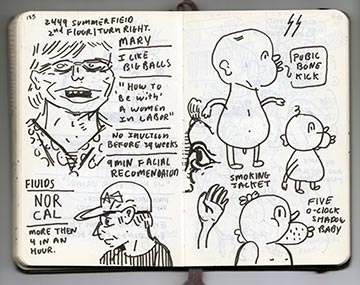 135
2449 SUMMERFIELD
2ND FLOOR | TURN RIGHT.
MARY
I LIKE
BIG BALLS
"HOW TO
'BE WITH'
A WOMEN
IN LABOR"
NO INUCTION
BEFORE 39 WEEKS
9 MIN FACIAL
RECOMENDATION
FLUIDS
NOR
CAL
MORE THEN
4 IN AN
HOUR.
PUBIC
BONE
KICK
SMOKING
JACKET
FIVE
O-CLOCK
SHADOW
BABY